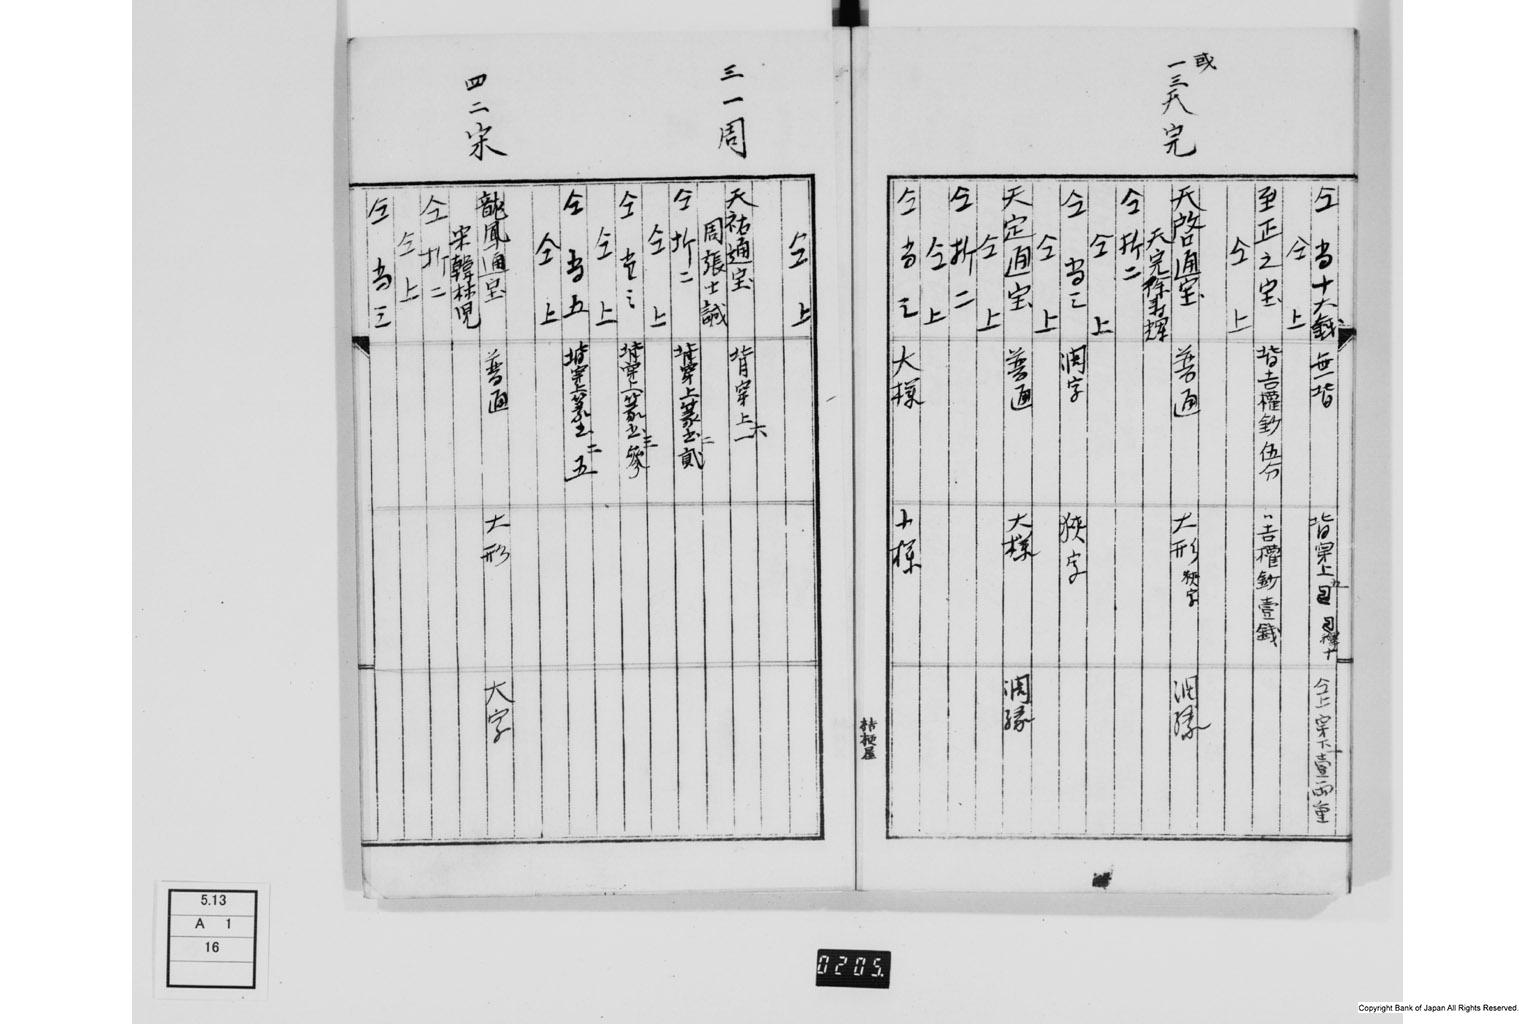 或
一三天完
仝 当十大銭 無背 背穿上 仝上 穿下壹両重
仝上
至正之宝 背吉權鈔伍分 〃吉權鈔壹銭
仝上
天啓通宝 普通 大形 狹字 濶縁
天完徐寿輝
仝 折二
仝上
仝 当三 濶字 狹字
仝上
天定通宝 普通 大様 濶縁
仝上
仝 折二
仝上
仝 当三 大様 小様
桔梗屋
三一周
仝上
天祐通宝 背穿上一
周張士誠
仝 折二 背穿上篆書貳
仝上
仝 当三 背穿上篆書參
仝上
仝 当五 背穿上篆書五
仝上
四二宋
龍鳳通宝 普通 大形 大字
宋韓林児
仝 折二
仝上
仝 当三
5.13
A 1
16
0205.
Copyright Bank of Japan All Rights Reserved.